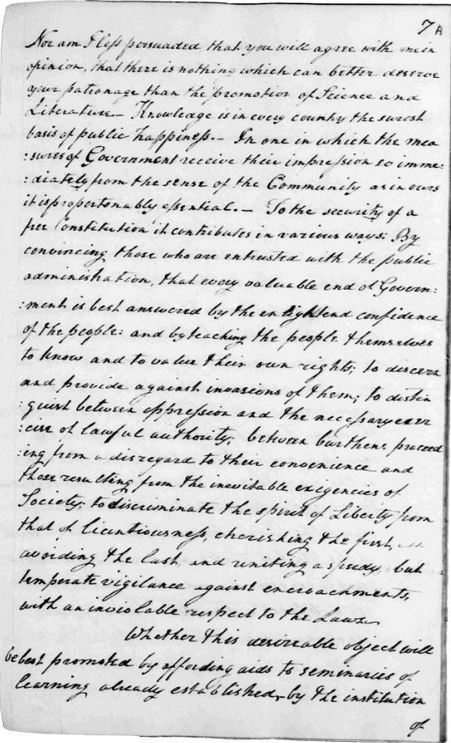 7A
Nor am I less persuaded that you will agree with me in
opinion, that there is nothing which can better deserve
your patronage than the promotion of Science and
Literature. — Knowledge is in every country the surest
basis of public happiness. — In one in which the mea
:sures of Government receive their impression so imme:
:diately from the sense of the Community as in ours
it is proportionably essential. — To the security of a
free Constitution it contributes in various ways: By
convincing those who are entrusted with the public
administration, that every valuable end of Govern:
:ment is best answered by the enlightend confidence
of the people: and by teaching the people themselves
to know and to value their own rights; to discern
and provide against invasions of them; to distin
:guish between oppression and the necessary exer
:cise of lawful authority; between burthens proceed
:ing from a disregard to their convenience and
those resulting from the inevitable exigencies of
Society; to discriminate the spirit of Liberty from
that of licentiousness, cherishing the first,
avoiding the last, and uniting a speedy but
temperate vigilance against encroachments,
with an inviolable respect to the Laws.
Whether this desireable object will
be best promoted by affording aids to seminaries of
learning already established, by the institution
of